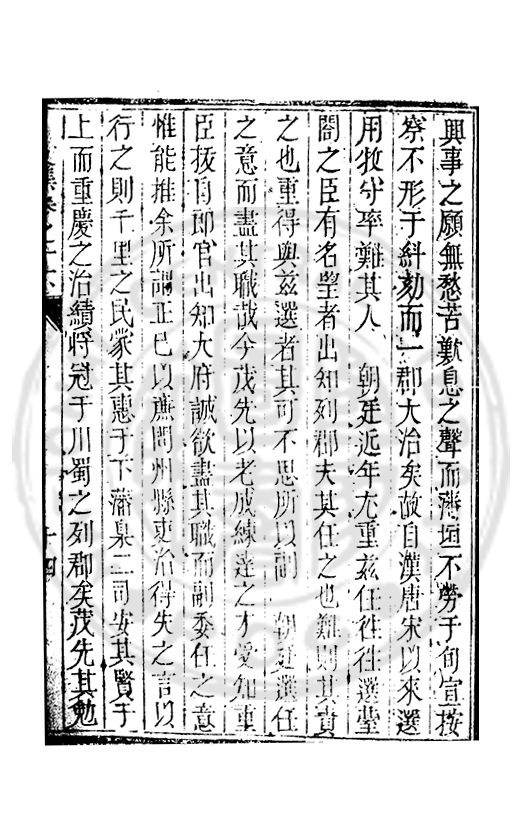 興事之願無愁苦歎息之聲而藩垣不勞于旬宣按
察不形于糾劾而一郡大治矣故自漢唐宋以來選
用牧守率難其人　朝廷近年尤重茲任徃徃選臺
閣之臣有名望者出知列郡夫其任之也難則其責
之也重得與茲選者其可不思所以副　朝廷選任
之意而盡其職哉今茂先以老成練達之才受知重
臣拔自郎官出知大府誠欲盡其職而副委任之意
惟能推余所謂正已以廉問州縣吏治得失之言以
行之則千里之民蒙其惠于下藩臬二司安其賢于
上而重慶之治績將冠于川蜀之列郡矣茂先其勉
十四